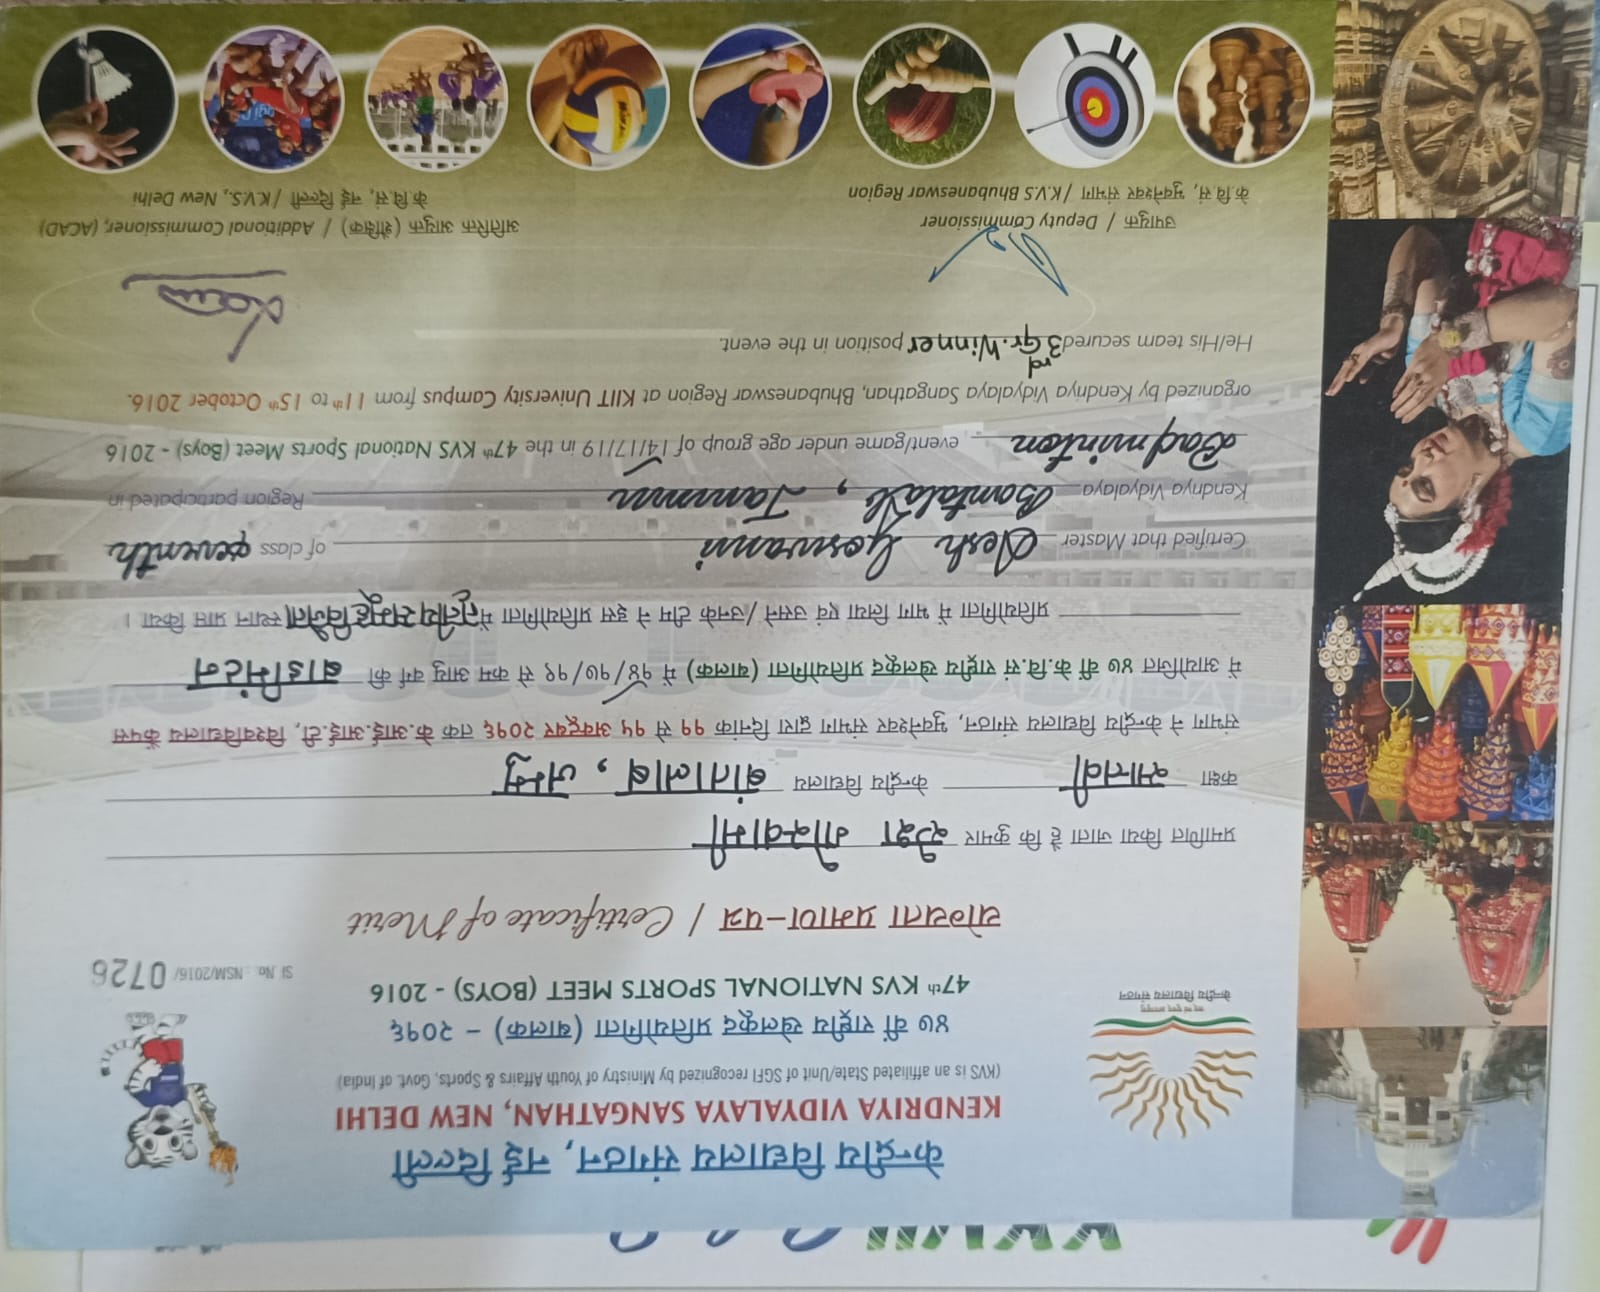 केन्द्रीय विद्यालय संगठन, नई दिल्ली
KENDRIYA VIDYALAYA SANGATHAN, NEW DELHI
(KVS is an affiliated State/Unit of SGFI recognized by Ministry of Youth Affairs & Sports, Govt. of India)
४७ वीं राष्ट्रीय खेलकूद प्रतियोगिता (बालक) - २०१६
47th KVS NATIONAL SPORTS MEET (BOYS) - 2016
केन्द्रीय विद्यालय संगठन
Sl .No. : NSM/2016/ 0726
योग्यता प्रमाण-पत्र / Certificate of Merit
प्रमाणित किया जाता है कि कुमार गोस्वामी
कक्षा सातवी केन्द्रीय विद्यालय बंतालाब, जम्मु
संभाग ने केन्द्रीय विद्यालय संगठन, भुवनेश्वर संभाग द्वारा दिनांक ११ से १५ अक्टूबर २०१६ तक के.आई.आई.टी. विश्वविद्यालय कैंपस
में आयोजित ४७ वीं के.वि.सं राष्ट्रीय खेलकूद प्रतियोगिता (बालक) में १४/१७/१९ से कम आयु वर्ग की बाडमिंटन
प्रतियोगिता में भाग लिया एवं उसने /उनके टीम ने इस प्रतियोगिता में तृतीय समूह विजेता स्थान प्राप्त किया ।
Certified that Master Goswami of class seventh
Kendriya Vidyalaya Bantalab, Jammu Region participated in
Badminton event/game under age group of 14/17/19 in the 47th KVS National Sports Meet (Boys) - 2016
organized by Kendriya Vidyalaya Sangathan, Bhubaneswar Region at KIIT University Campus from 11th to 15th October 2016.
He/His team secured 3rd Gr. Winner position in the event.
उपायुक्त / Deputy Commissioner
के.वि.सं, भुवनेश्वर संभाग / K.V.S Bhubaneswar Region
अतिरिक्त आयुक्त (शैक्षिक) / Additional Commissioner, (ACAD)
के.वि.सं, नई दिल्ली / K.V.S., New Delhi